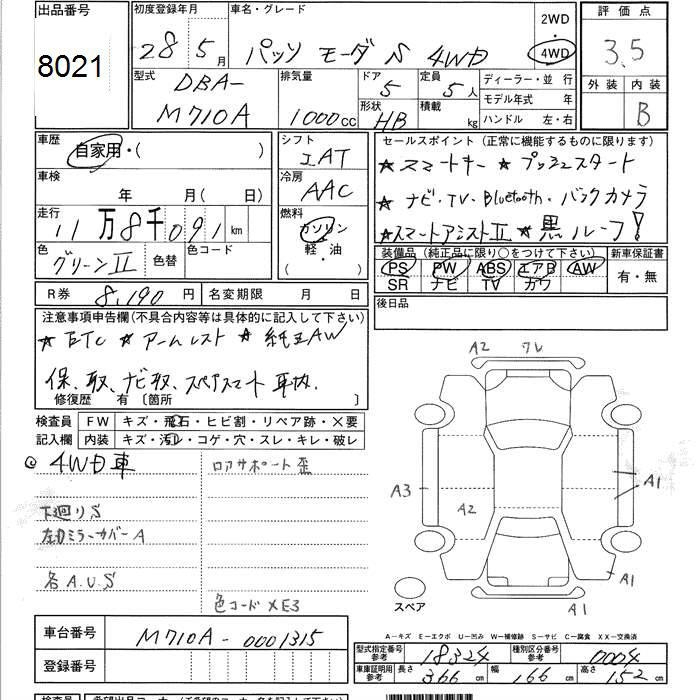 出品番号 初度登録年月 車名・グレード 2WD 評価点
8021 28年5月 パッソ モーダ S 4WD 4WD 3.5
型式 排気量 ドア 定員 ディーラー・並行 外装 内装
DBA- 5 5人 モデル年式 年
M710A 1000cc 形状 積載 kg ハンドル 左・右 B
HB
車歴 シフト セールスポイント (正常に機能するものに限ります)
自家用・( ) IAT ★スマートキー ★プッシュスタート
車検 冷房 ★ナビ・TV・Bluetooth・バックカメラ
年 月( 日) AAC ★スマートアシストII ★黒ルーフ!
走行 燃料
11万8千091km ガソリン
軽・油
色 色替 色コード 装備品 (純正品に限り○をつけて下さい) 新車保証書
グリーンII PS PW ABS エアB AW 有・無
SR ナビ TV カワ
R券 8,190円 名変期限 月 日 後日品
注意事項申告欄(不具合内容等は具体的に記入して下さい)
★ETC ★アームレスト ★純正AW
保、取、ナビ取、スペアスマート車内.
修復歴 有 〔箇所 〕
検査員 FW キズ・飛石・ヒビ割・リペア跡・×要
記入欄 内装 キズ・汚レ・コゲ・穴・スレ・キレ・破レ
◎4WD車 ロアサポート歪
下廻りS
左Dミラーカバー A
各A.U.S
色コード XE3
A2 ワレ
A3
A2
A1
A1
A1
スペア
A-キズ E-エクボ U-凹み W-補修跡 S-サビ C-腐食 XX-交換済
車台番号 M710A-0001315
登録番号
型式指定番号 参考 18324 種別区分番号 参考 0004
車庫証明用 参考 長さ 366cm 幅 166cm 高さ 152cm